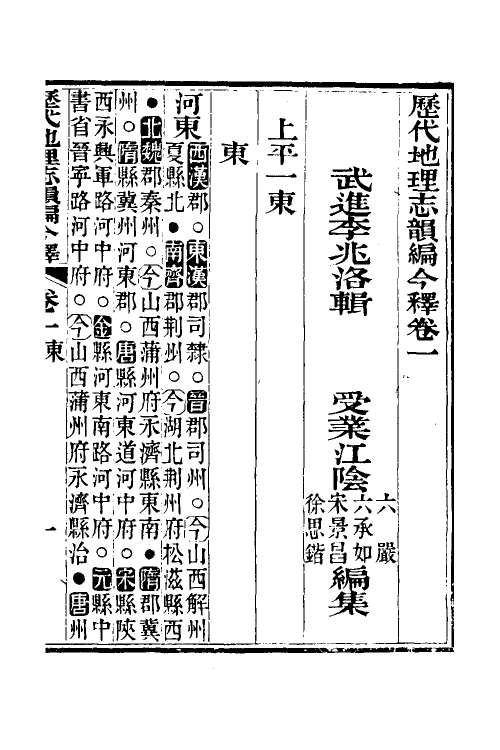 歷代地理志韻編今釋卷一
武進李兆洛輯
受業江陰
六嚴
六承如
宋景昌
徐思鍇
編集
上平一東
東
河東
西漢郡○東漢郡司隸○晉郡司州○今山西解州
夏縣北●南齊郡荆州○今湖北荆州府松滋縣西
●北魏郡秦州○今山西蒲州府永濟縣東南●隋郡冀
州○隋縣冀州河東郡○唐縣河東道河中府○宋縣陝
西永興軍路河中府○金縣河東南路河中府○元縣中
書省晉寧路河中府○今山西蒲州府永濟縣治●唐州
歷代地理志韻編今釋
卷一東
一